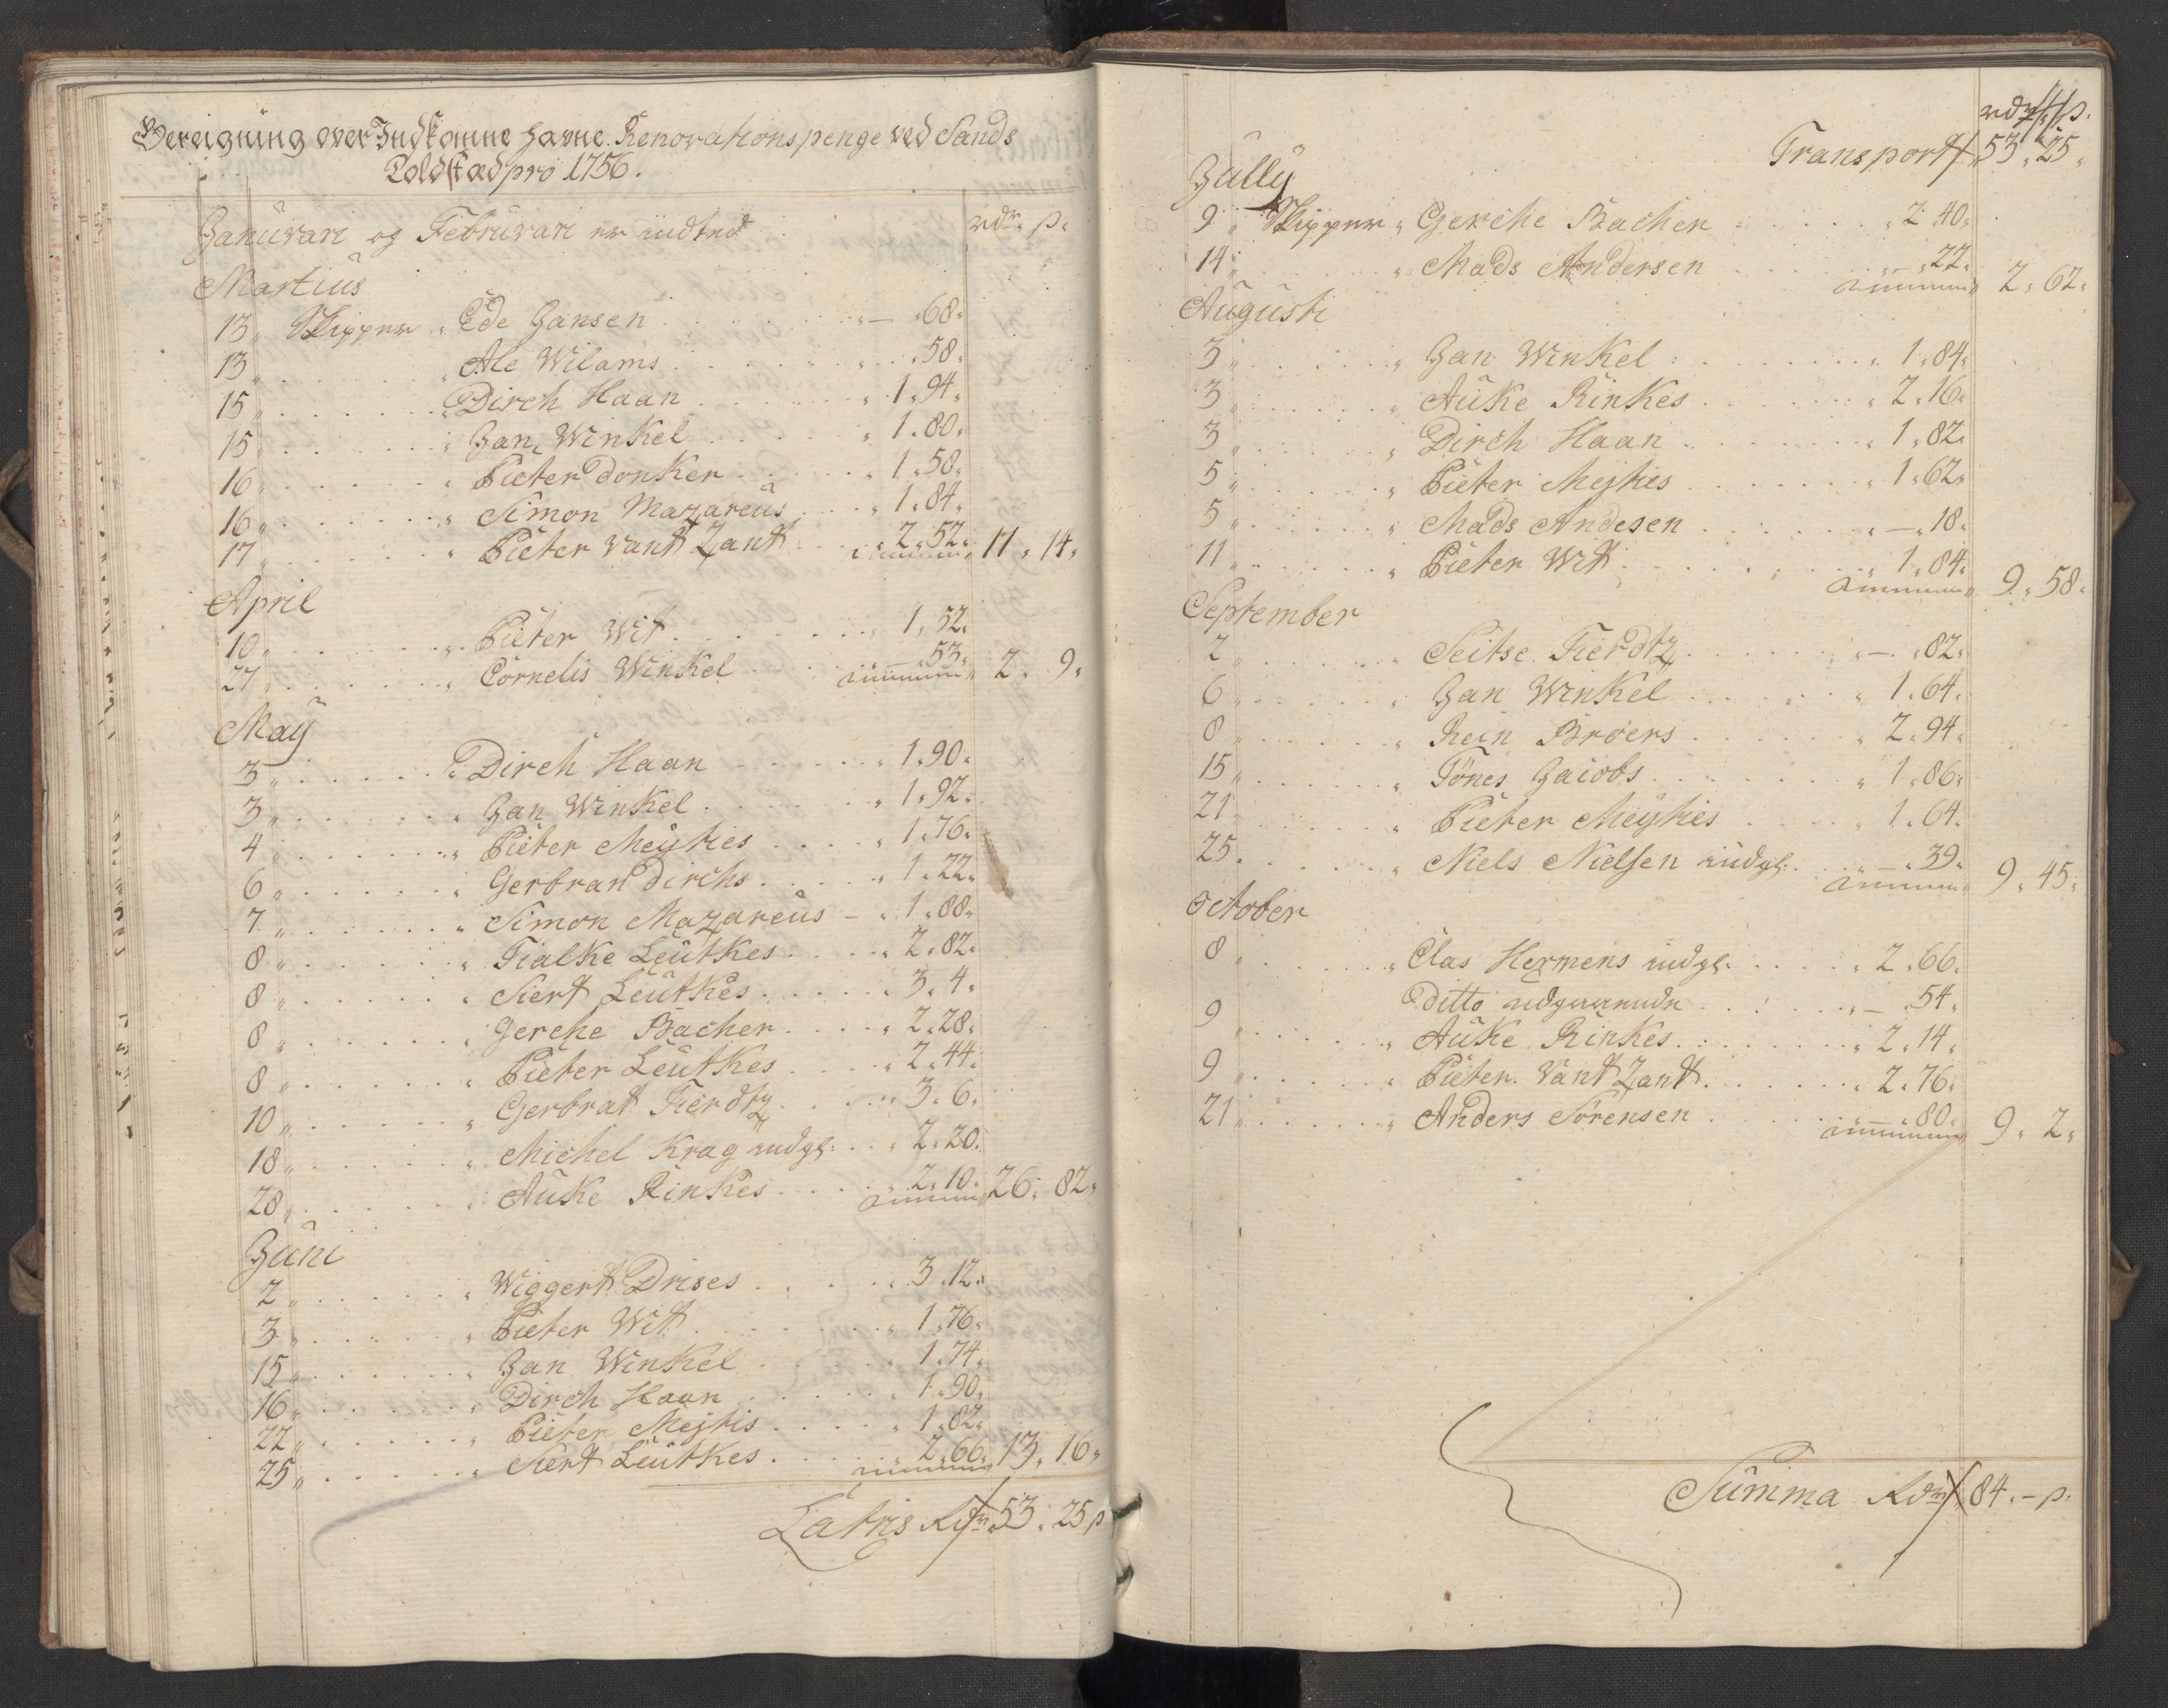 Bereigning over Indkomne Havne Renovations penge ved Sands
Toldsted pro 1756.
rdr. s.
Januvari og Februvari er indted
Martius
13 Skipper Ede Jansen — 68
13 Ale Wilams 58
15 Dirch Haan 1. 94
15 Jan Winkel 1. 80
16 Pieter Donker 1. 50
16 Simon Mazareus 1. 84
17 Pieter Vant Zant 2. 52 11. 14
April
10 Pieter Wit 1. 52
27 Cornelis Winkel — 53 2. 9
May
3 Dirch Haan 1. 90
3 Jan Winkel 1. 92
4 Pieter Meyties 1. 76
6 Gerbran Dirchs 1. 22
7 Simon Mazareus 1. 88
8 Tialke Leutkes 2. 82
8 Siert Leutkes 3. 4
8 Gerche Bacher 2. 28
8 Pieter Leutkes 2. 44
10 Gerbrat Tierdtz 3. 6
18 Michel Krag udgl. 2. 20
28 Auke Rinkes 2. 10 26. 82
Juni
2 Wiggert Drises 3. 12
3 Pieter Wit 1. 76
15 Jan Winkel 1. 74
16 Dirch Haan 1. 90
22 Pieter Meytis 1. 82
25 Siert Leutkes 2. 66 13. 16
Latris Rdr 53. 25 s
rdr s.
Transport 53. 25
Jully
9 Skipper Gerche Bacher 2. 40
14 Mads Andersen 22 2. 62
Augusti
3 Jan Winkel 1. 84
3 Auke Rinkes 2. 16
3 Dirch Haan 1. 82
5 Pieter Meyties 1. 62
5 Mads Andesen — 18
11 Pieter Wit 1. 84 9. 58
September
2 Seitse Tierdtz — 82
6 Jan Winkel 1. 64
8 Rein Broers 2. 94
15 Tönes Jaiobs 1. 86
21 Pieter Meyties 1. 64
25 Niels Nielsen udgl. — 39 9. 45
October
8 Clas Hermens udgl. 2. 66
Ditto udgaaende — 54
9 Auke Rinkes 2. 14
9 Pieter Vant Zant 2. 76
21 Anders Sörensen — 80 9. 2
Summa Rdr 84. — s.